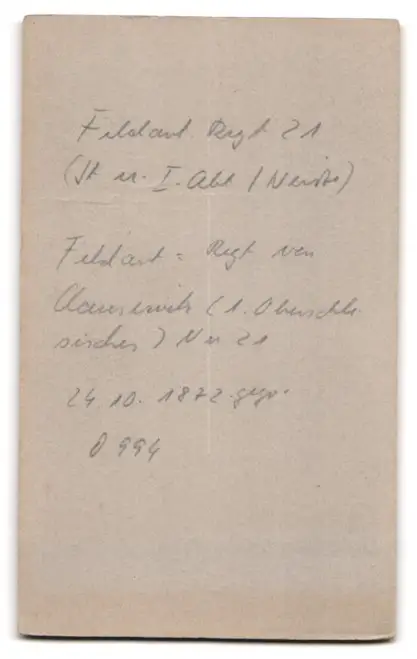 Feldart. Regt 21
(St u. I. Abt / Neisse)
Feldart = Regt von
Clausewitz (1. Oberschle
sisches) Nr 21
24 10. 1872. gegr.
0 994